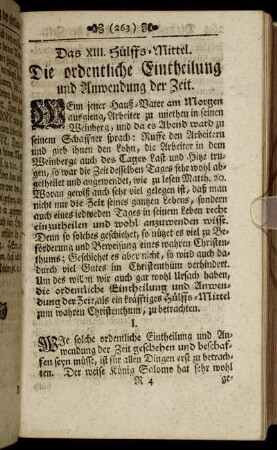 (263)
Das XIII. Hülffs-Mittel.
Die ordentliche Eintheilung
und Anwendung der Zeit.
WEnn jener Hauß-Vater am Morgen
ausgieng, Arbeiter zu miethen in seinen
Weinberg, und da es Abend ward zu
seinem Schaffner sprach: Ruffe den Arbeitern
und gieb ihnen den Lohn, die Arbeiter in dem
Weinberge auch des Tages Last und Hitze tru-
gen, so war die Zeit desselben Tages sehr wohl ab-
getheilet und angewendet, wie zu lesen Matth. 20.
Woran gewiß auch sehr viel gelegen ist, daß man
nicht nur die Zeit seines gantzen Lebens, sondern
auch eines iedweden Tages in seinem Leben recht
einzutheilen und wohl anzuwenden wisse.
Denn so solches geschiehet, so nützet es viel zu Be-
förderung und Beweisung eines wahren Christen-
thums; Geschiehet es aber nicht, so wird auch da-
durch viel Gutes im Christenthum verhindert.
Um des willen wir auch gar wohl Ursach haben,
die ordentliche Eintheilung und Anwen-
dung der Zeit, als ein kräfftiges Hülffs-Mittel
zum wahren Christenthum, zu betrachten.
I.
WJe solche ordentliche Eintheilung und An-
wendung der Zeit geschehen und beschaf-
fen seyn müsse, ist für allen Dingen erst zu betrach-
ten. Der weise König Salomo hat sehr wohl
R 4 ge-